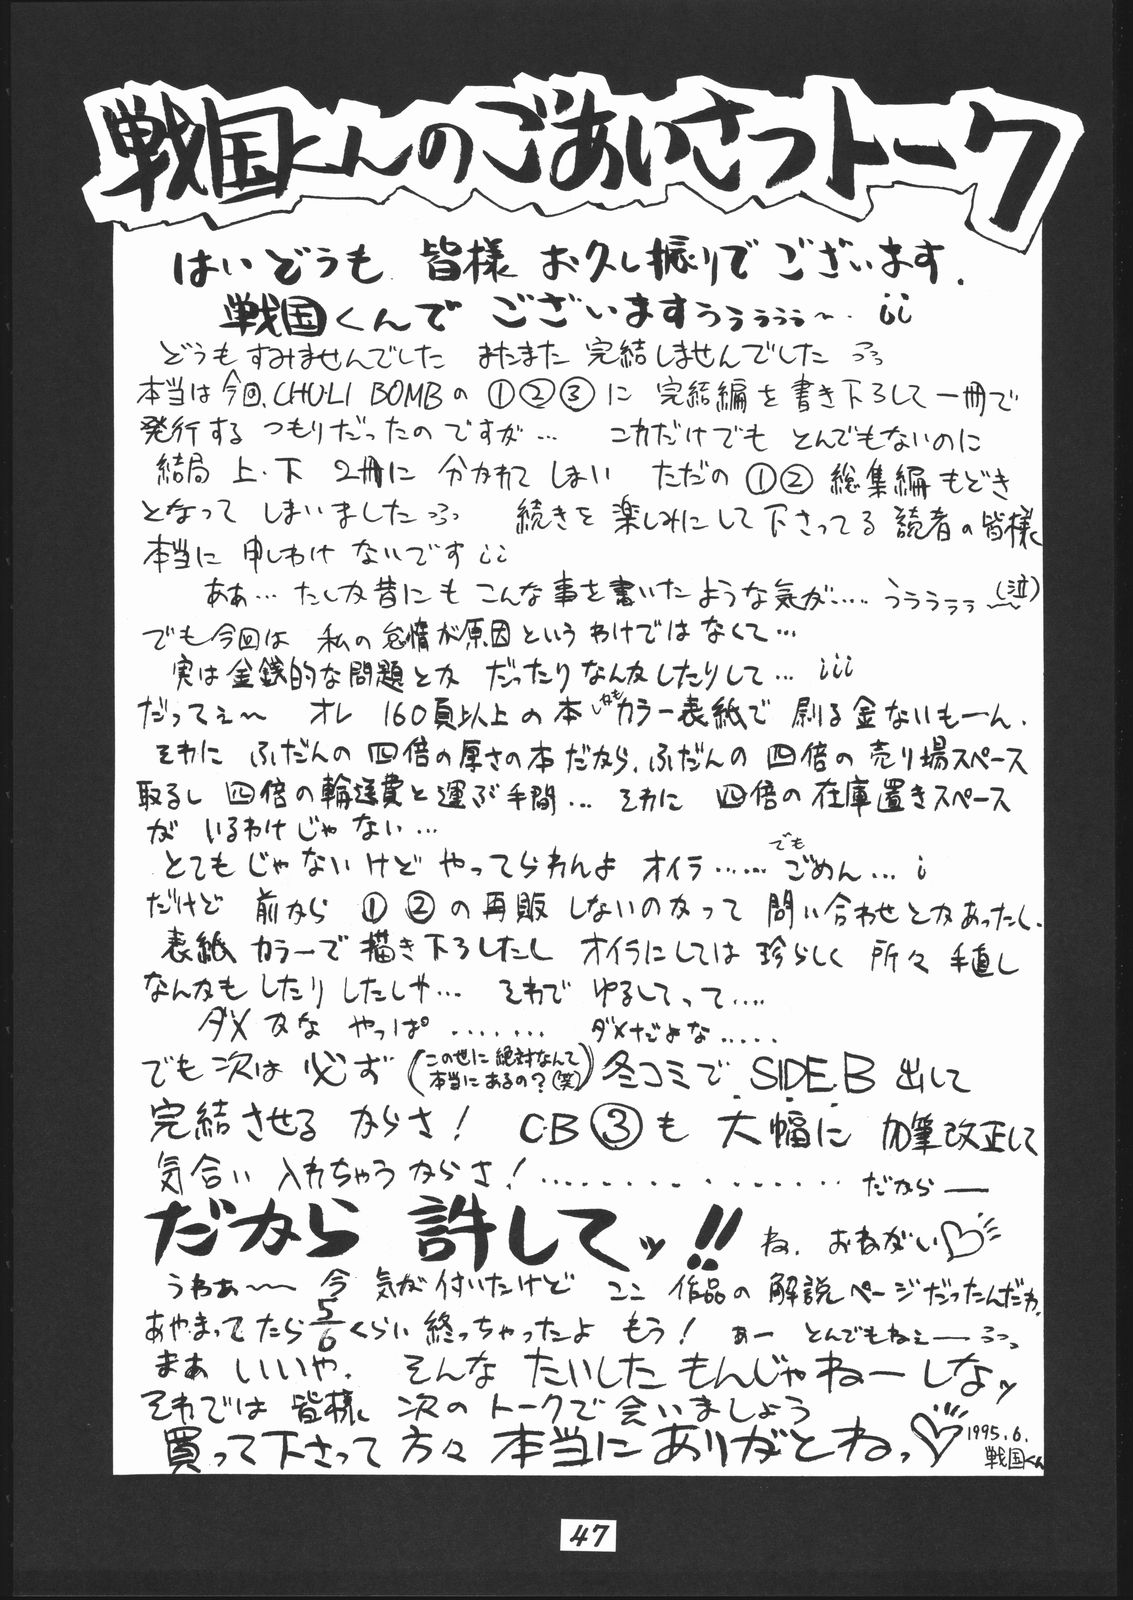 戦国くんのごあいさつトーク
はいどうも 皆様 お久し振りで ございます.
戦国くんで ございますぅぅぅぅぅ〜..
どうもすみませんでした またまた 完結しませんでした
本当は今回、CHU-LI BOMBの ①②③に 完結編を書き下ろして一冊で
発行する つもりだったのですが… これだけでも とんでもないのに
結局 上・下 2冊に 分かれてしまい ただの①② 総集編もどき
となって しまいました 続きを 楽しみにして下さってる 読者の皆様
本当に 申しわけ ないです
ああ… たしか昔にも こんな事を書いたような気が…. ううううぅ〜(泣)
でも今回は 私の怠惰が原因というわけではなくて…
実は金銭的な問題とか だったりなんかしたりして…
だってぇ〜 オレ 160頁以上の本しかもカラー表紙で 刷る金ないもーん.
それに ふだんの 四倍の厚さの本だから、ふだんの 四倍の売り場スペース
取るし 四倍の輸送費と運ぶ手間… それに 四倍の在庫置きスペース
が いるわけじゃない…
とてもじゃないけど やってらんよ オイラ…… でも ごめん…
だけど 前から ①②の再販 しないのかって 問い合わせとかあったし.
表紙 カラーで描き下ろしたし オイラにしては 珍らしく 所々 手直し
なんかも したりしたしサ… それで ゆるしてって….
ダメかな やっぱ ....... ダメだよな.....
でも次は 必ず (この世に絶対なんて本当にあるの?(笑)) 冬コミで SIDE.B 出して
完結させる からさ! C・B③も 大幅に 加筆改正して
気合い 入れちゃうからさ!................ だから—
だから 許してッ!! ね. おねがい♡
うわぁ〜〜 今 気が付いたけど ここ 作品の 解説ページだったんだわ.
あやまってたら5/6くらい終っちゃったよ もう! ぁー とんでもねぇー
まあ いいや. そんな たいした もんじゃねーしなッ
それでは 皆様 次の トークで 会いましょう
買って下さって 方々 本当に ありがとねっ♡ 1995.6.
戦国くん
47